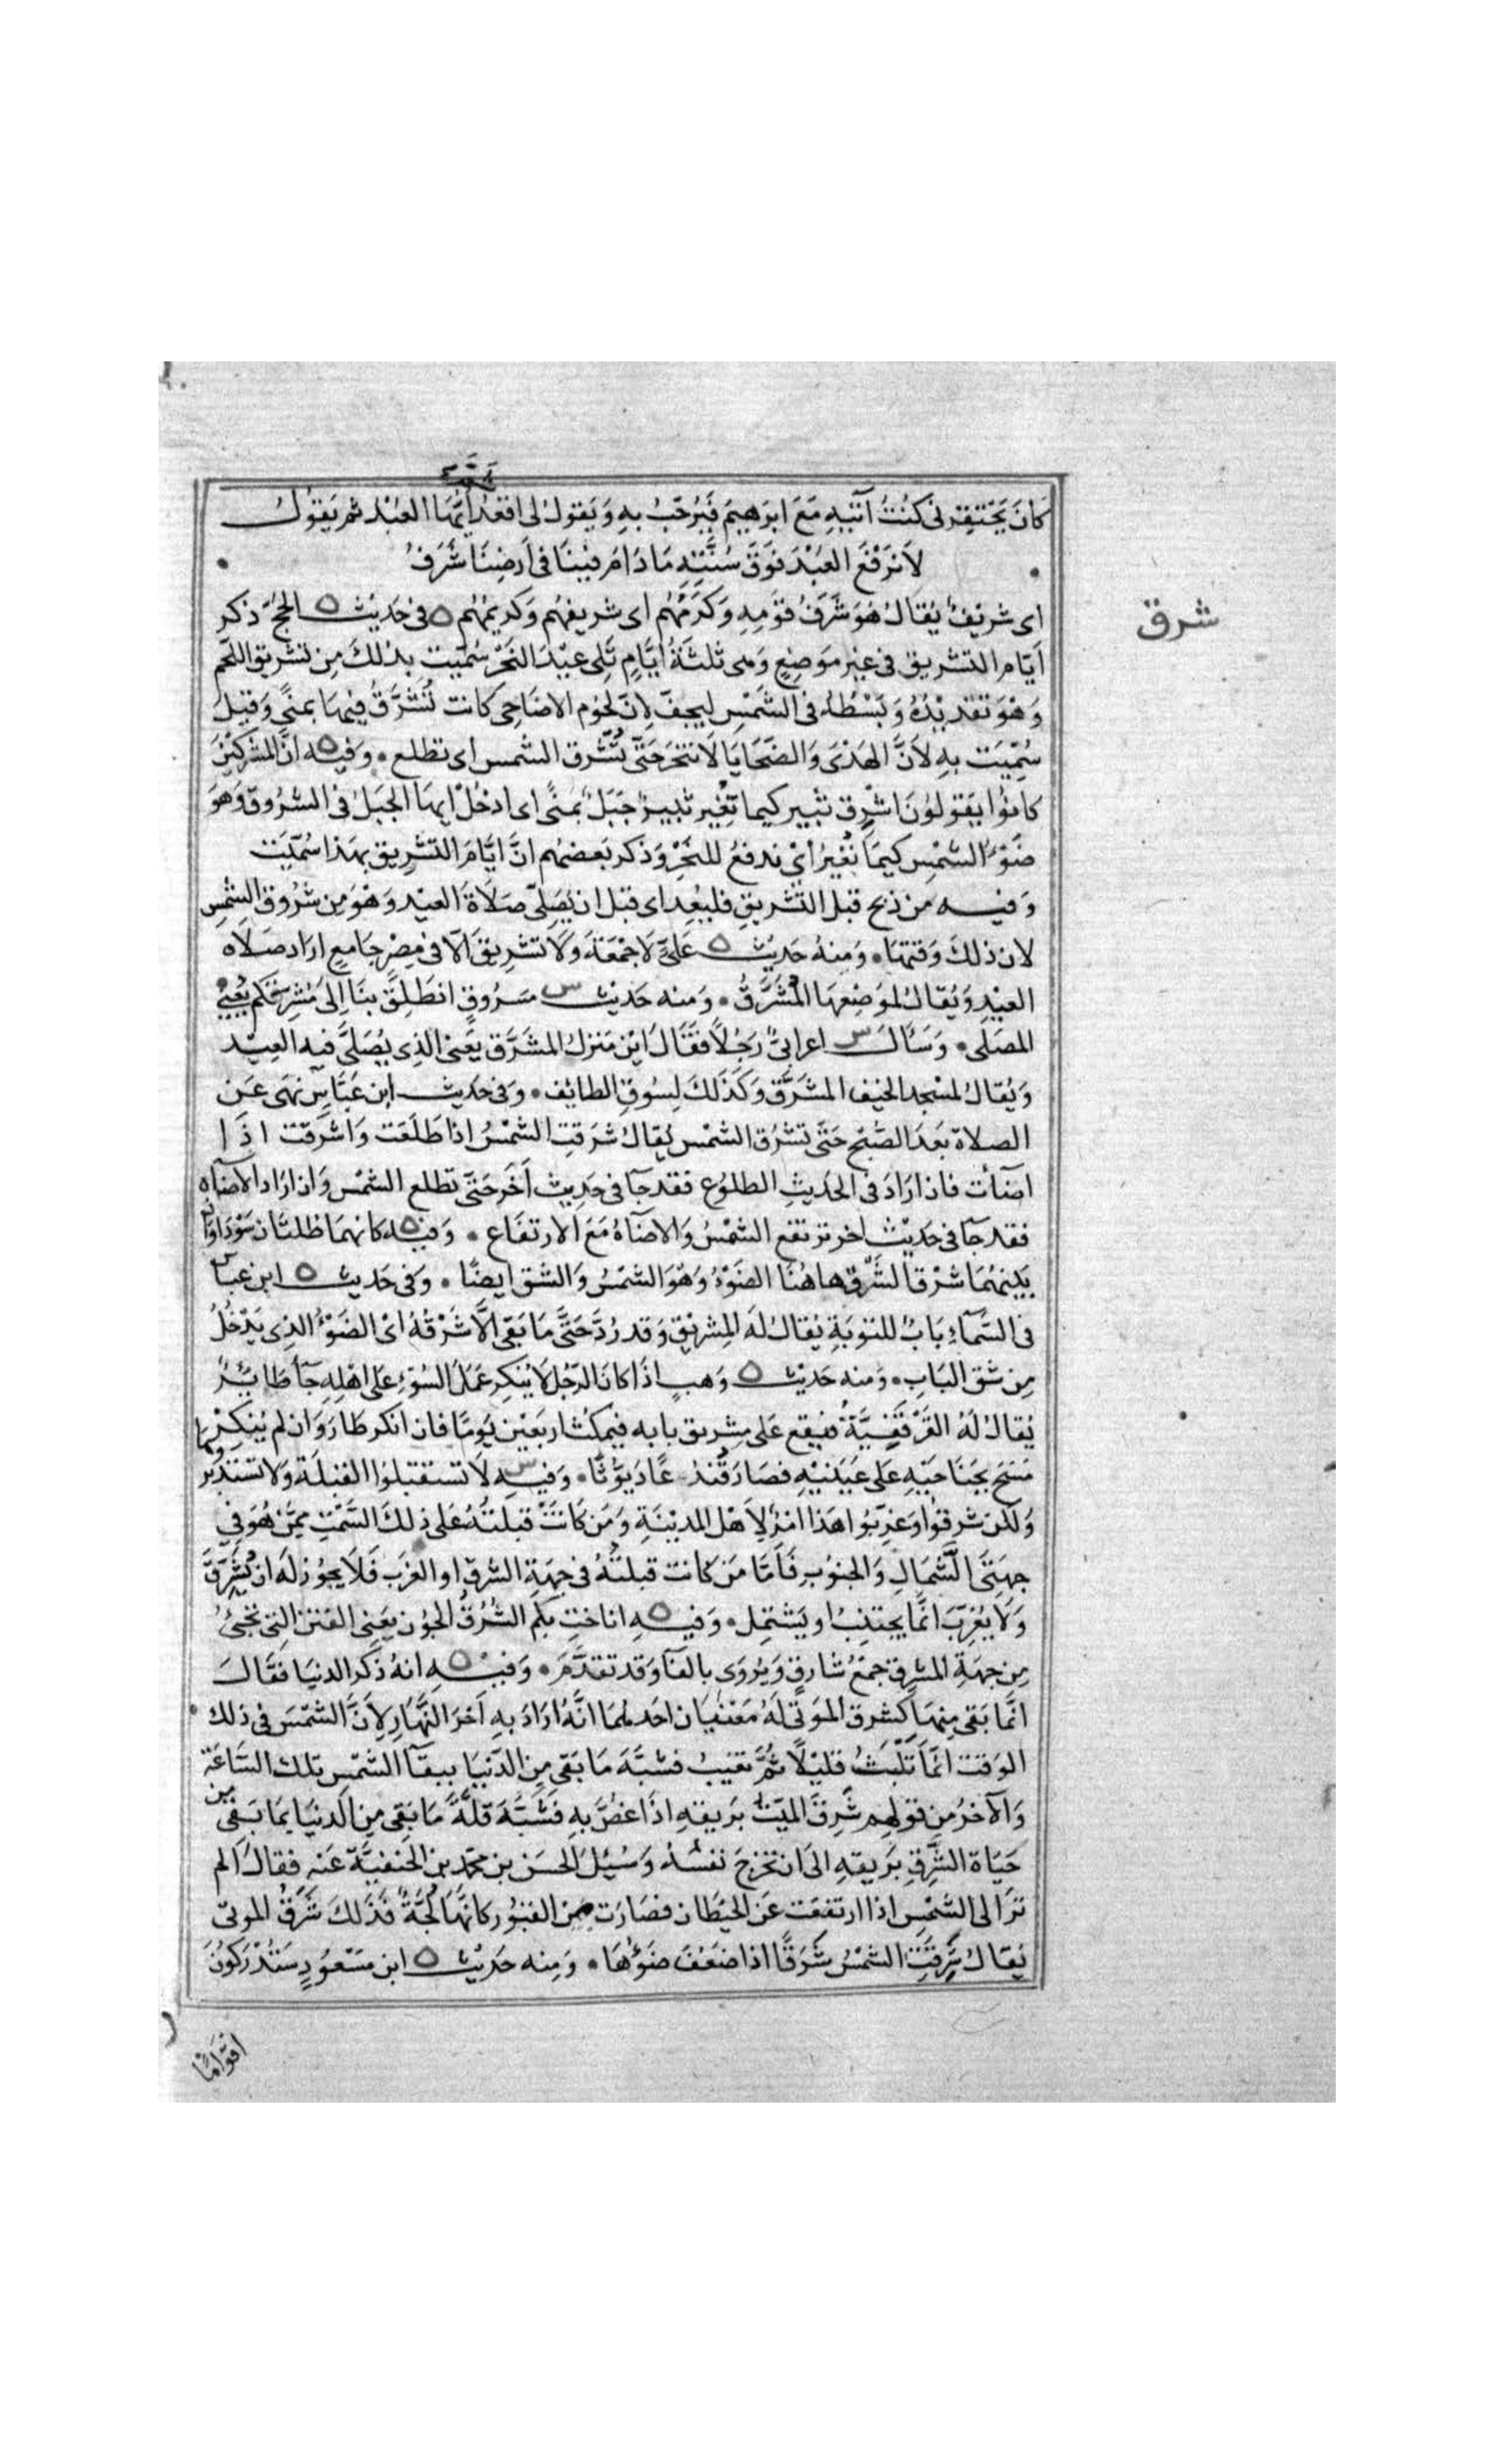 كَانَ يَحْتَقِرُنِى كُنْتُ آتِيهِ مَعَ ابرَهِيمَ فَيُرَحِّبُ بِهِ وَيَقولُ لى اقعُد اَيُّهَا العَبْد ثم يَقولُ
لاَ نَرْفَعَ العَبْدَ فَوقَ سُنَّتِهِ مَا دَامَ فِينَا فى اَرضِنَا شَرَفُ
شرق
اى شريفٌ يُقالُ هُوَ شَرَفُ قَومِهِ وَكَرَمُهُم اى شريفهُم وَكريمُهُم ه فى حَدِيث ه الحجّ ذكر
اَيّام التشريق فى غيرِ مَوضِعٍ وَهى ثلثَةُ اَيَّامٍ تَلِى عِيْدَ النَحْرِ سُمّيت بذلكَ مِن تشريق اللحم
وَهْوَ تَقْدِيْدُهُ وَبَسْطُهُ فى الشَمْسِ ليجفّ لِانّ لحُوم الاضَاحِى كانت تُشَرَّقُ فِيهَا بمنًى وَقيلَ
سُمِّيَت بِهِ لاَنَّ الهَدْىَ وَالضَحَايَا لَا تنحَر حَتّى تَشْرق الشمس اى تطلع . وَفيه ه انَّ المشركِيْنَ
كانوُا يَقولوُنَ اشْرِق ثبير كيما نُغِير ثبِيرٌ جَبَلٌ بمنًى اى ادخُلْ ايهَا الجَبَلُ فى الشرُوق وَهوَ
ضَوْءُ الشمْسِ كيمَا نُغيرُ اىْ ندفعُ للنَحْرِ وَذكر بَعضهُم انَّ ايَّامَ التشرِيق بهَذا سُمّيَت
وَفيه من ذبح قبل التشْرِيقِ فليُعِد اى قبل ان يُصَلِّىَ صَلَاةَ العيْدِ وَهْوَ مِن شرُوق الشمْسِ
لان ذلكَ وَقتهَا . وَمِنهُ حَدِيث ه عَلىٍّ لَا جُمْعَةَ وَلَا تشرِيقَ اِلّا فى مِصْرٍ جَامِعٍ ارَاد صَلَاه
العيْدِ وَيُقالُ لموَضِعِهَا المُشَرَّقُ . وَمنه حَدِيث س مَسْرُوقٍ انطَلِقْ بنَا اِلى مُشَرَّقِكم يَعنِى
المصَلّى . وَسَألَ س اعرابىٌّ رَجُلاً فقَالَ ايْن مَنزلُ المشَرَّق يَعنى الذِى يُصَلَّى فيه العِيْد
وَيُقالُ لمسْجد الخيف المشَرَّق وَكذلكَ لِسُوقِ الطائِف . وَفى حَدِيث ابن عَبّاسٍ نهَى عَن
الصلاة بَعدَ الصُّبْحِ حَتّى تشرُق الشمْس يُقالُ شرَقتِ الشمْسُ اذا طَلَعَت وَاشرَقت اذَا
اضآَت فان ارَادَ فى الحَدِيثِ الطلوُع فقد جآ فى حَدِيث آخَر حَتّى تطلع الشمْس وَان ارَاد الاضآه
فقد جآ فى حَدِيْث اخر ترتفع الشمْسُ وَالاضآة مَعَ الارتفَاع . وَفيه ه كانهمَا ظلتان سَوْدَاوَانِ
بَينهُمَا شرْق الشَّرْق هَاهُنَا الضَوْءُ وَهْوَ الشمْسُ وَالشق ايضًا . وَفى حَدِيث ه ابن عباس
فى السَّمآءِ بَابٌ للتوبَةِ يُقالُ لَه المِشرِيْق وَقد رُدَّ حَتَّى مَا بَقى اِلَّا شَرْقُهُ اىْ الضَوْءُ الذِى يَدْخُلُ
مِن شَقّ البَاب . وَمنه حَديْث ه وَهب اذَا كانَ الرّجُل لَا يُنكِر عَمَلَ السُوْءِ عَلى اهْلِهِ جآَ طَائِرٌ
يُقالُ لَهُ القَرْقَفَنَّةُ فيقع عَلى مِشرِيق بابه فيمكث ارَبَعْين يَومًا فان انكر طارَ وَان لم يُنكِرْ
مَسَحَ بجنَاحَيْهِ عَلى عَيْنَيْهِ فصَارَ قُنْذُعًا دَيوُّثًا . وَفيه س لَا تستقبلوُا القبْلَةَ وَلَا تستدْبرُوهَا
وَلكن شرقوُا وَغرّبُوا هَذا امْرٌ لِاَهْل المدِيْنَةِ وَمَن كانَتْ قبلتُهُ عَلى ذلكَ السَّمْتِ ممَّن هُوَ فى
جهَتَى الشَّمَالِ وَالجنوُب فَاَمَّا مَن كانت قبلتُهُ فى جهَةِ الشرق او الغَرب فَلَا يجوُز لَه ان يُشَرِّقَ
وَلَا يُغَرِّبَ انّمَا يجتنِبُ او يَشتمِل . وَفيه ه اناخت بكم الشُرُقُ الجوُن يَعنِى الفتن التى تجئُ
مِن جهَةِ المشرق جمْعُ شارِقٍ وَيُروَى بالفآ وَقد تقدَّمَ . وَفيه ه انهُ ذكر الدنيا فقالَ
انّمَا بَقى مِنهَا كشَرق المَوتى لَهُ مَعْنيَان احَدهُمَا انَّهُ ارَادَ بهِ آخرَ النَّهَارِ لِاَنَّ الشمْسَ فى ذلك
الوَقت انَّمَا تَلْبَثُ قليْلاً ثُمَّ تغيبُ فشبَّهَ مَا بَقى مِن الدّنيَا ببقآ الشمْسِ تلك السَّاعَة
وَالآخرُ مِن قولهِم شَرِقَ الميّتُ بَريقهِ اذَا غصَّ بهِ فشَبَّهَ قلةَ مَا بَقِى مِن الدنيَا بمَا بَقىَ مِن
حَيَاة الشَرِقِ برَيقهِ الى ان تخرُجَ نفسُهُ وَسُئِلَ الحَسَن بن محمّد بن الحنفيَّة عَنهِ فقالَ اَلم
ترَ الى الشَّمْسِ اذا ارتفعَت عَن الحيْطان فصَارَت بين القبُور كانَّهَا لُجَّةٌ فذَلكَ شَرَقُ الموتى
يُقالُ شَرِقَتِ الشمْسُ شَرَقًا اذا ضعُفَ ضَوْءُهَا . وَمِنه حَديْث ه ابن مَسْعُودٍ سَتُدْرِكوُنَ
اقوَامًا